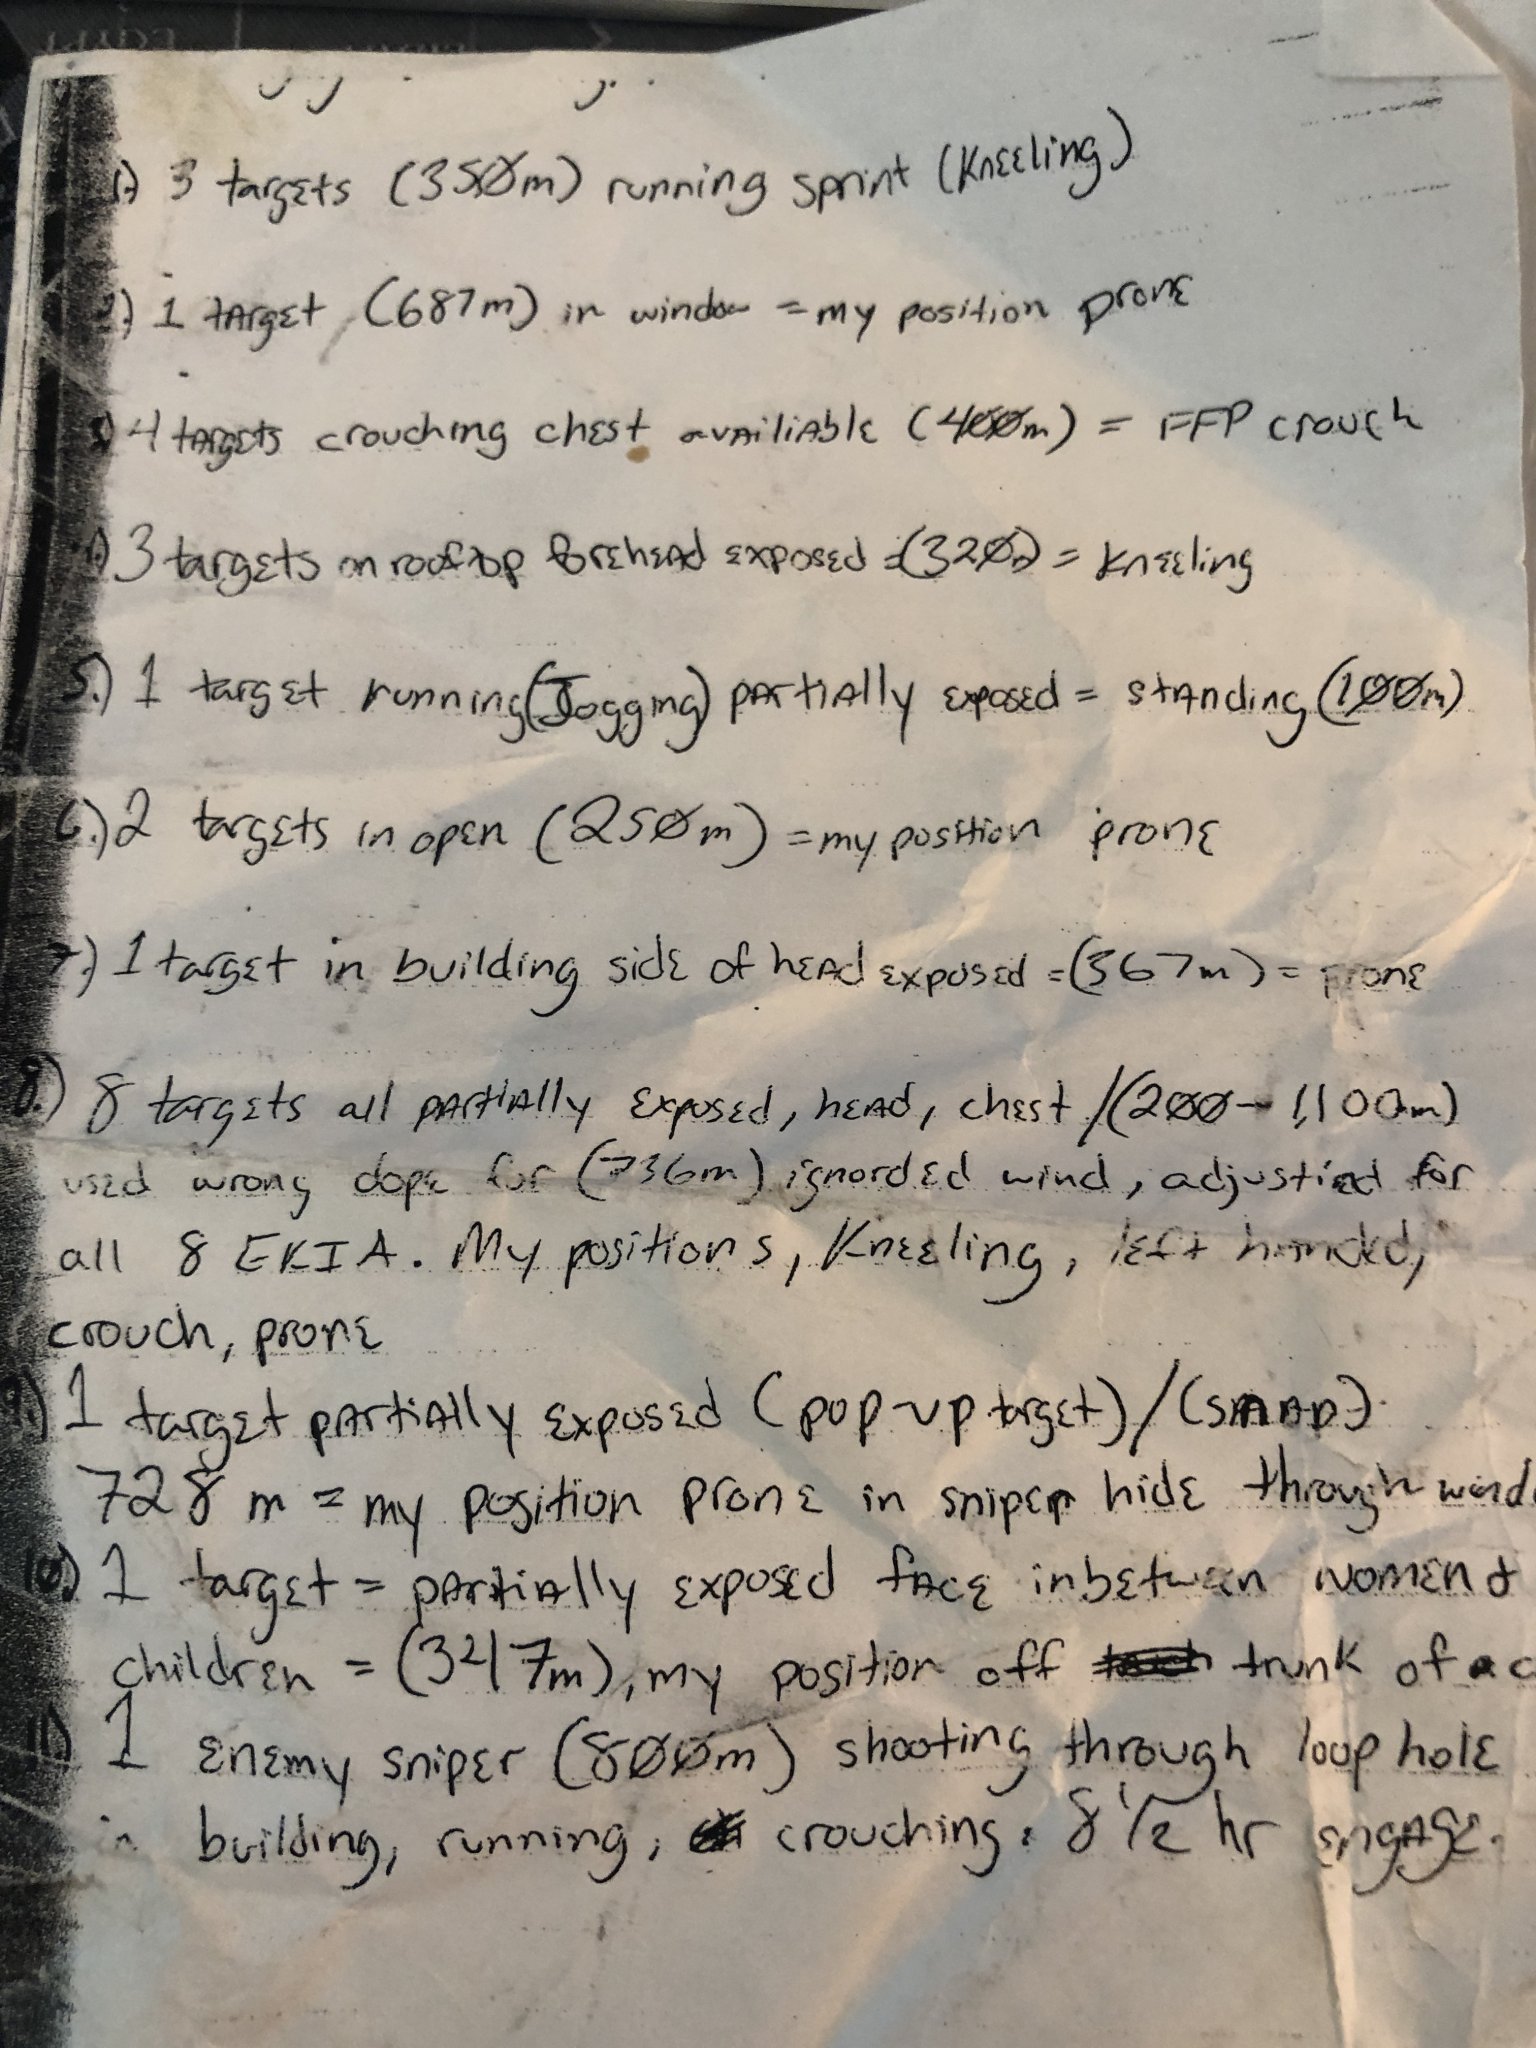 1.) 3 targets (350m) running sprint (Kneeling)
2.) 1 target (687m) in window = my position prone
3.) 4 targets crouching chest availiable (400m) = FFP crouch
4.) 3 targets on rooftop forehead exposed = (320m) = kneeling
5.) 1 target running (Jogging) partially exposed = standing (100m)
6.) 2 targets in open (250m) = my position prone
7.) 1 target in building side of head exposed = (367m) = prone
8.) 8 targets all partially exposed, head, chest /(200 - 1,100m)
used wrong dope for (736m) ignorded wind, adjustied for
all 8 EKIA. My positions, Kneeling, left handed,
crouch, prone
9.) 1 target partially exposed (pop-up target)/(snap)
728 m = my position prone in sniper hide through
10.) 1 target = partially exposed face inbetween women &
children = (327m), my position off trunk of a
11.) 1 enemy sniper (800m) shooting through loop hole
in building, running, crouching. 8 1/2 hr engage.